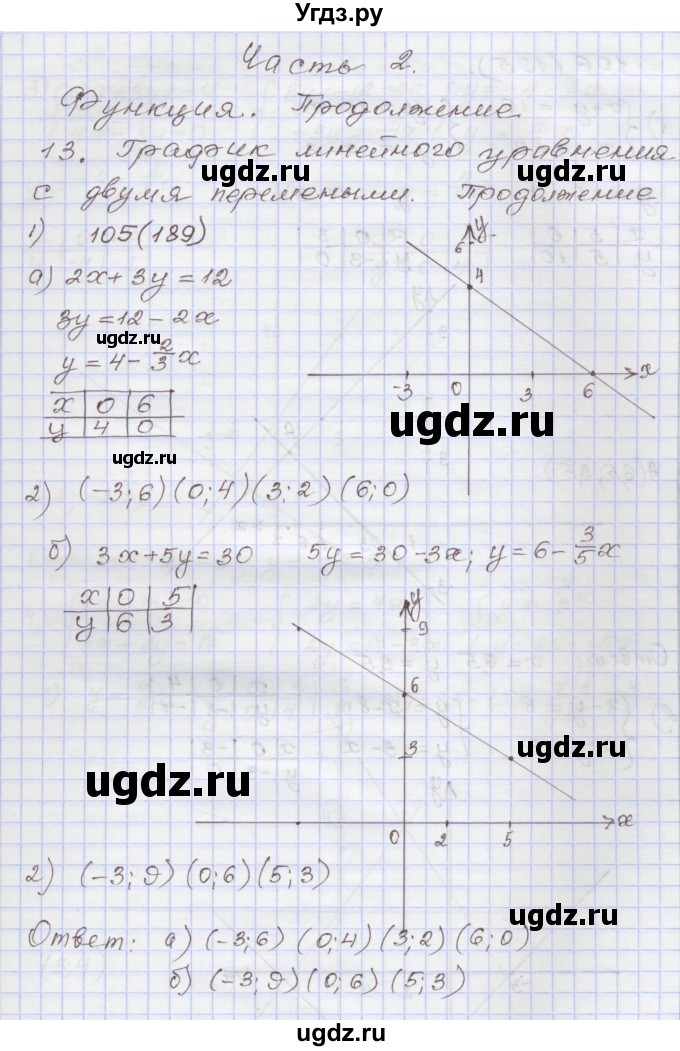 Угдз.ру
Часть 2.
Функция. Продолжение
13. График линейного уравнения
с двумя перемеными. Продолжение
1) 105(189)
а) 2x+3y=12
3y=12-2x
y=4-2/3x
x 0 6
y 4 0
y
6
4
-3 0 3 6 x
2) (-3;6) (0;4) (3;2) (6;0)
б) 3x+5y=30 5y=30-3x; y=6-3/5x
x 0 5
y 6 3
y
9
6
3
0 2 5 x
2) (-3;9) (0;6) (5;3)
Ответ: а) (-3;6) (0;4) (3;2) (6;0)
б) (-3;9) (0;6) (5;3)
ugdz.ru
ugdz.ru
ugdz.ru
ugdz.ru
ugdz.ru
ugdz.ru
ugdz.ru
ugdz.ru
ugdz.ru
ugdz.ru
ugdz.ru